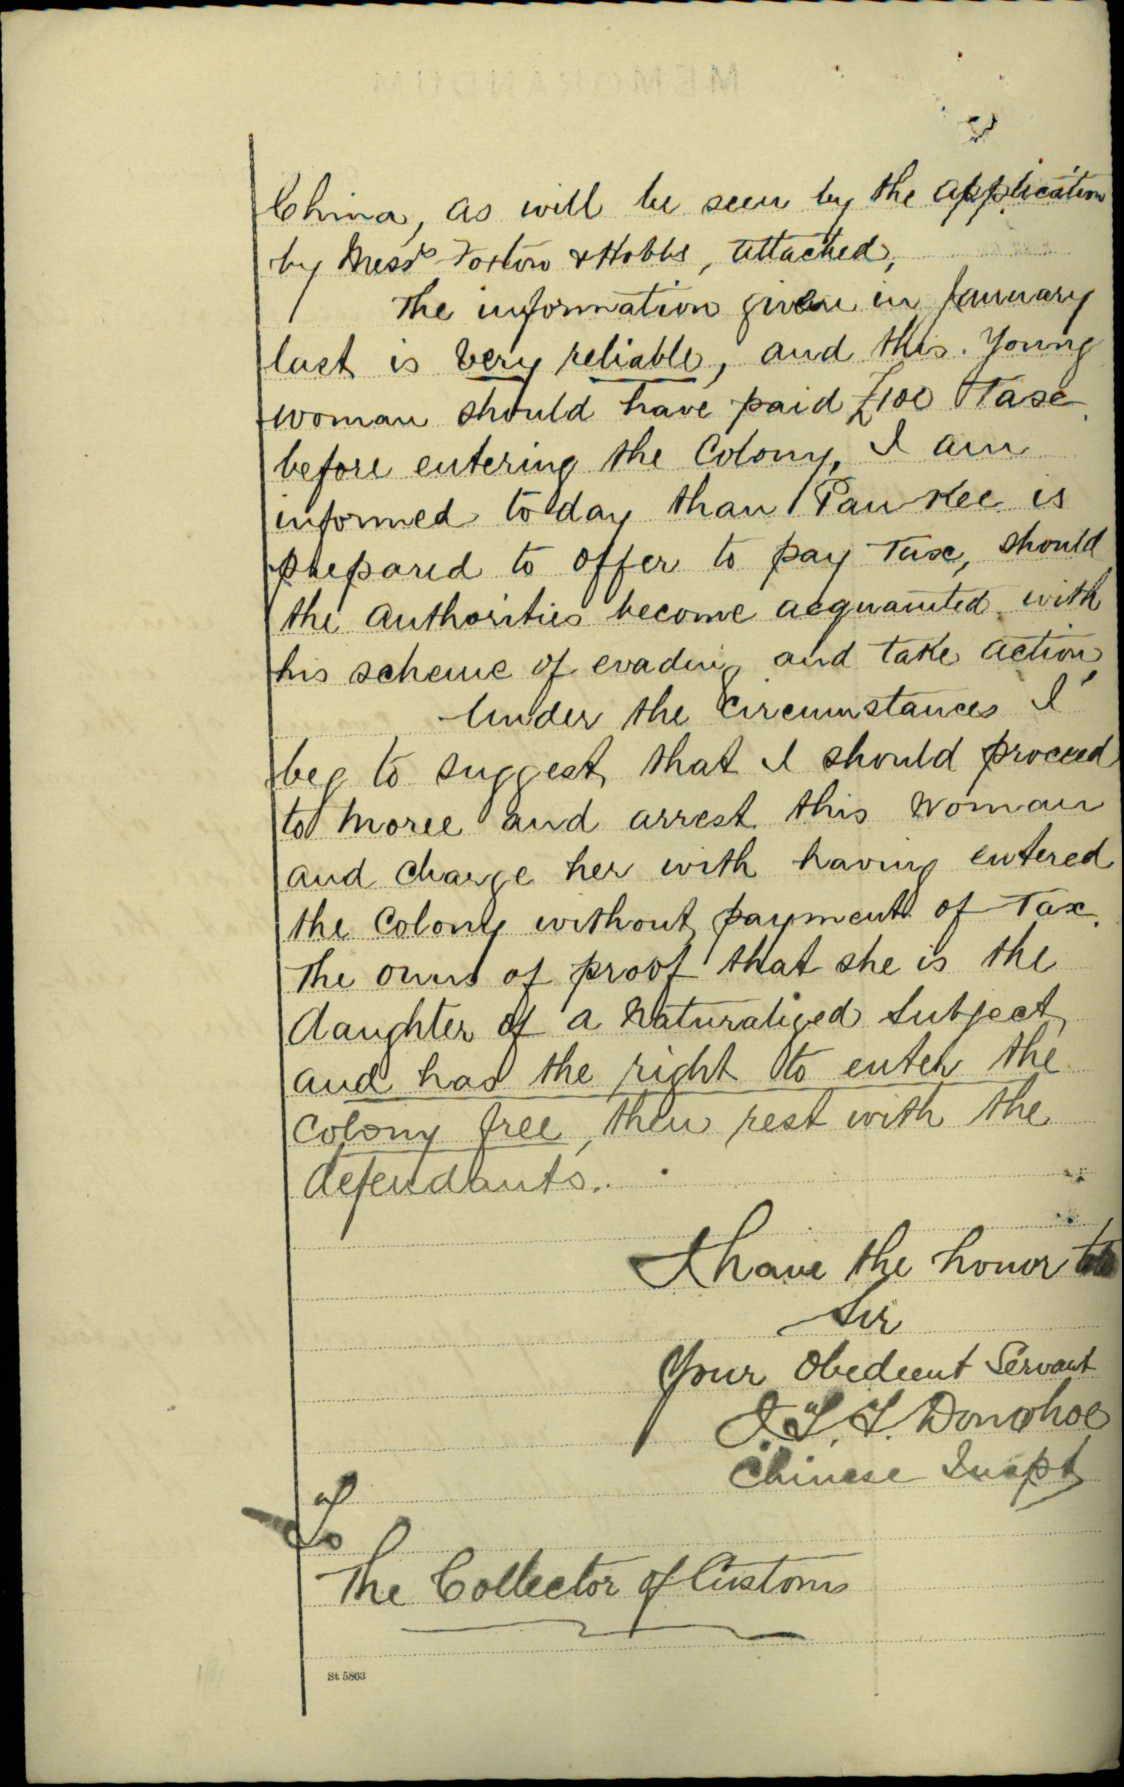 MEMORANDUM
China, as will be seen by the application
by Messrs Foxton & Hobbs, attached,
The information given in January
last is very reliable, and this Young
woman should have paid £100 Tax
before entering the Colony, I am
informed today than Pau Kee is
prepared to offer to pay Tax, should
the authorities become acquainted with
his scheme of evading and take action,
Under the circumstances I
beg to suggest that I should proceed
to Moree and arrest this woman
and charge her with having entered
the Colony without payment of Tax.
The onus of proof that she is the
daughter of a Naturalized Subject
and has the right to enter the
Colony free, then rest with the
defendants.
I have the honor to
Sir
Your Obedient Servant
J. T. T. Donohoe
Chinese Inspt
To
The Collector of Customs
St 5863